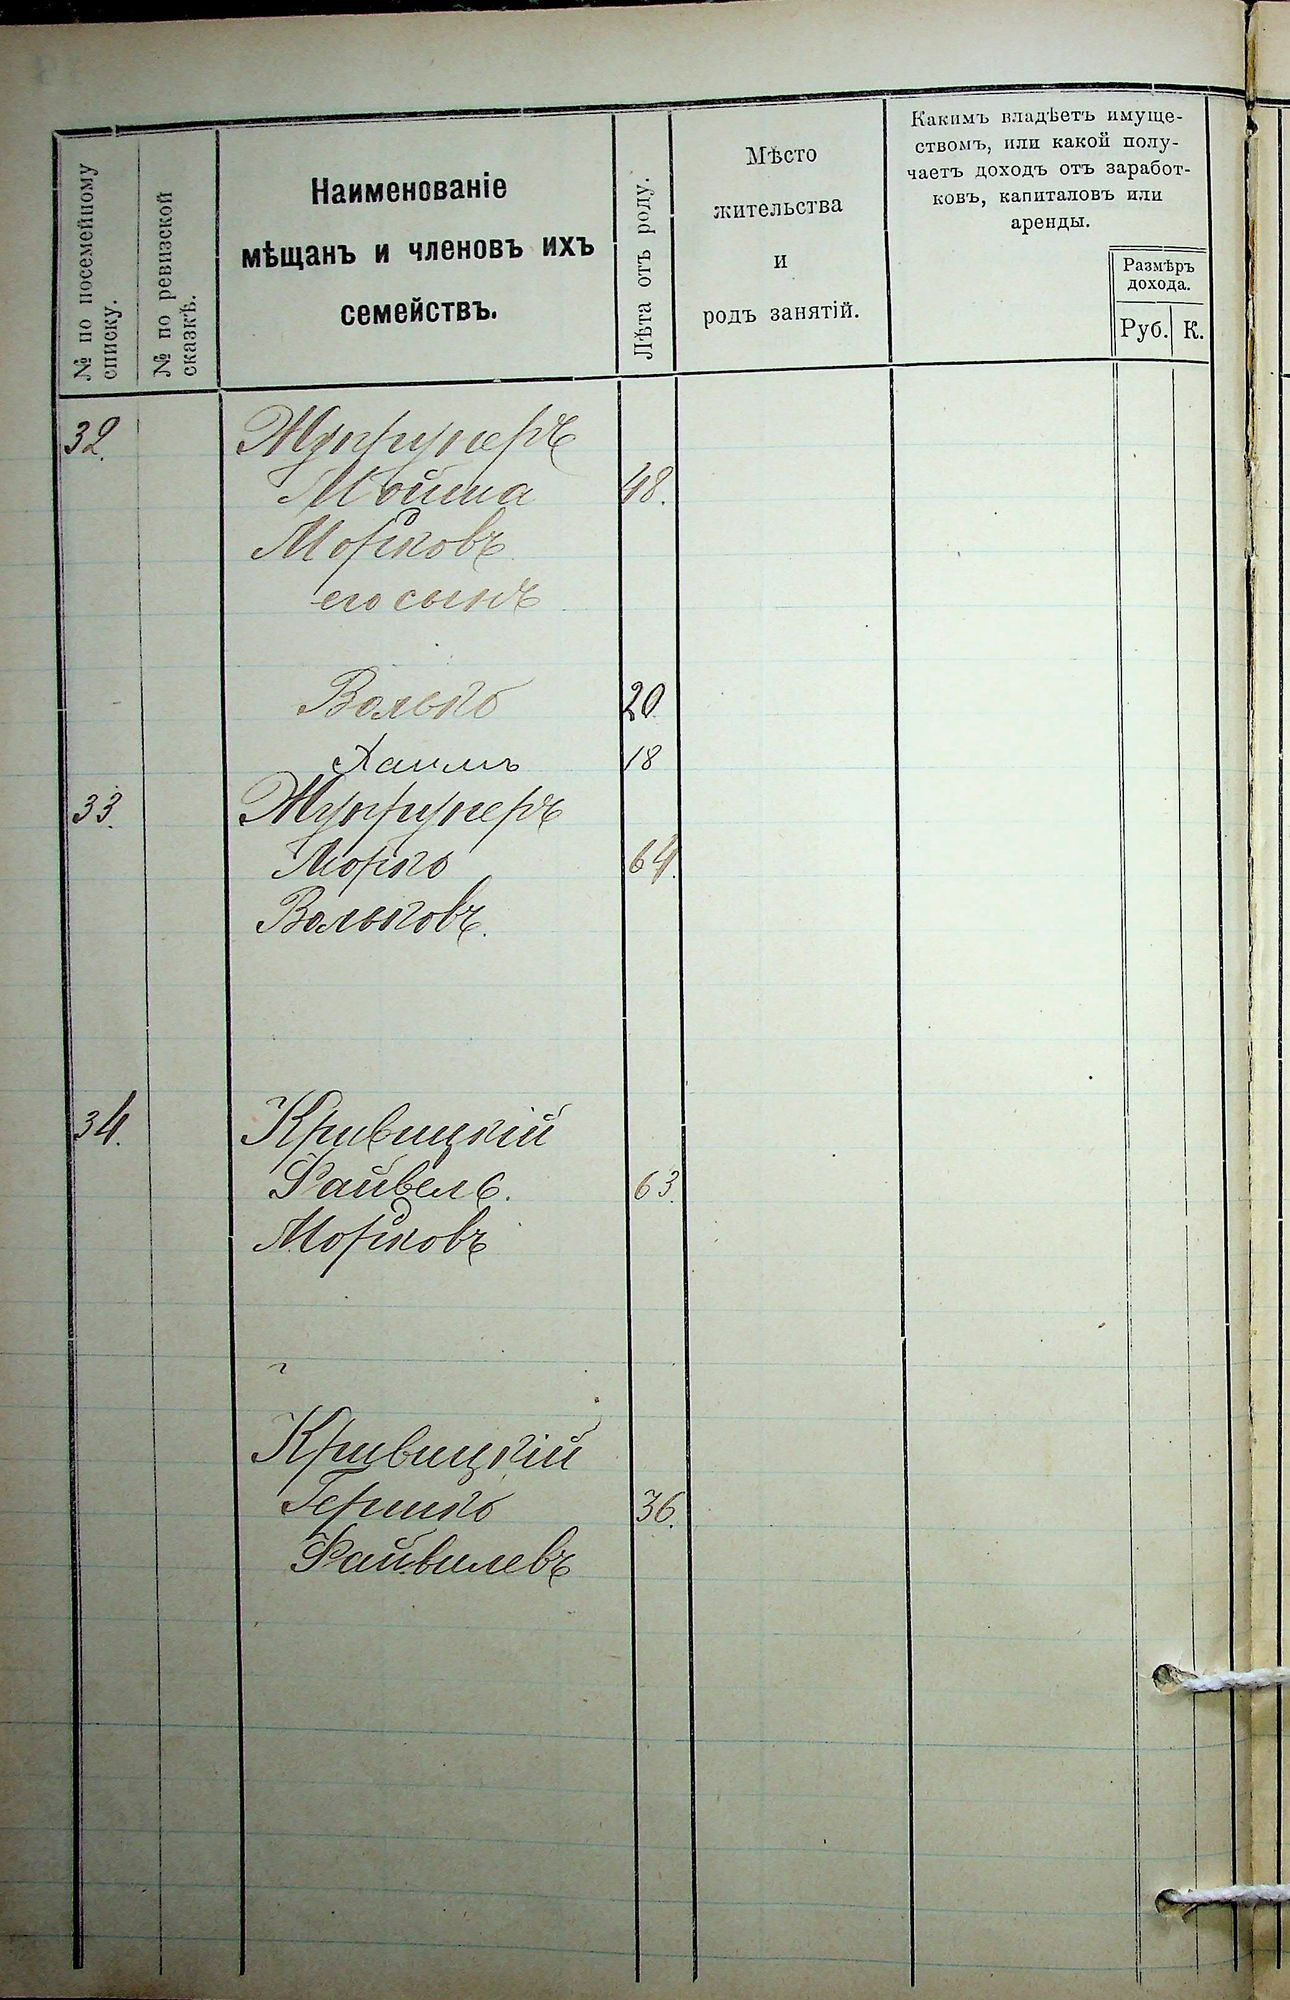 № по посемейному
списку.
№ по ревизской
сказкѣ.
Наименованіе
мѣщанъ и членовъ ихъ
семействъ.
Лѣта отъ роду.
Мѣсто
жительства
и
родъ занятій.
Какимъ владѣетъ имуще-
ствомъ, или какой полу-
чаетъ доходъ отъ заработ-
ковъ, капиталовъ или
аренды.
Размѣръ
дохода.
Руб. К.
32.
Мойша 48.
Морковъ
его сынъ
Волько 20
Хаимъ 18
33.
Морко 64.
Вольковъ.
34. Кривицкій
Файвель. 63.
Морковъ
Кривицкій
Гершко 36.
Файвилевъ